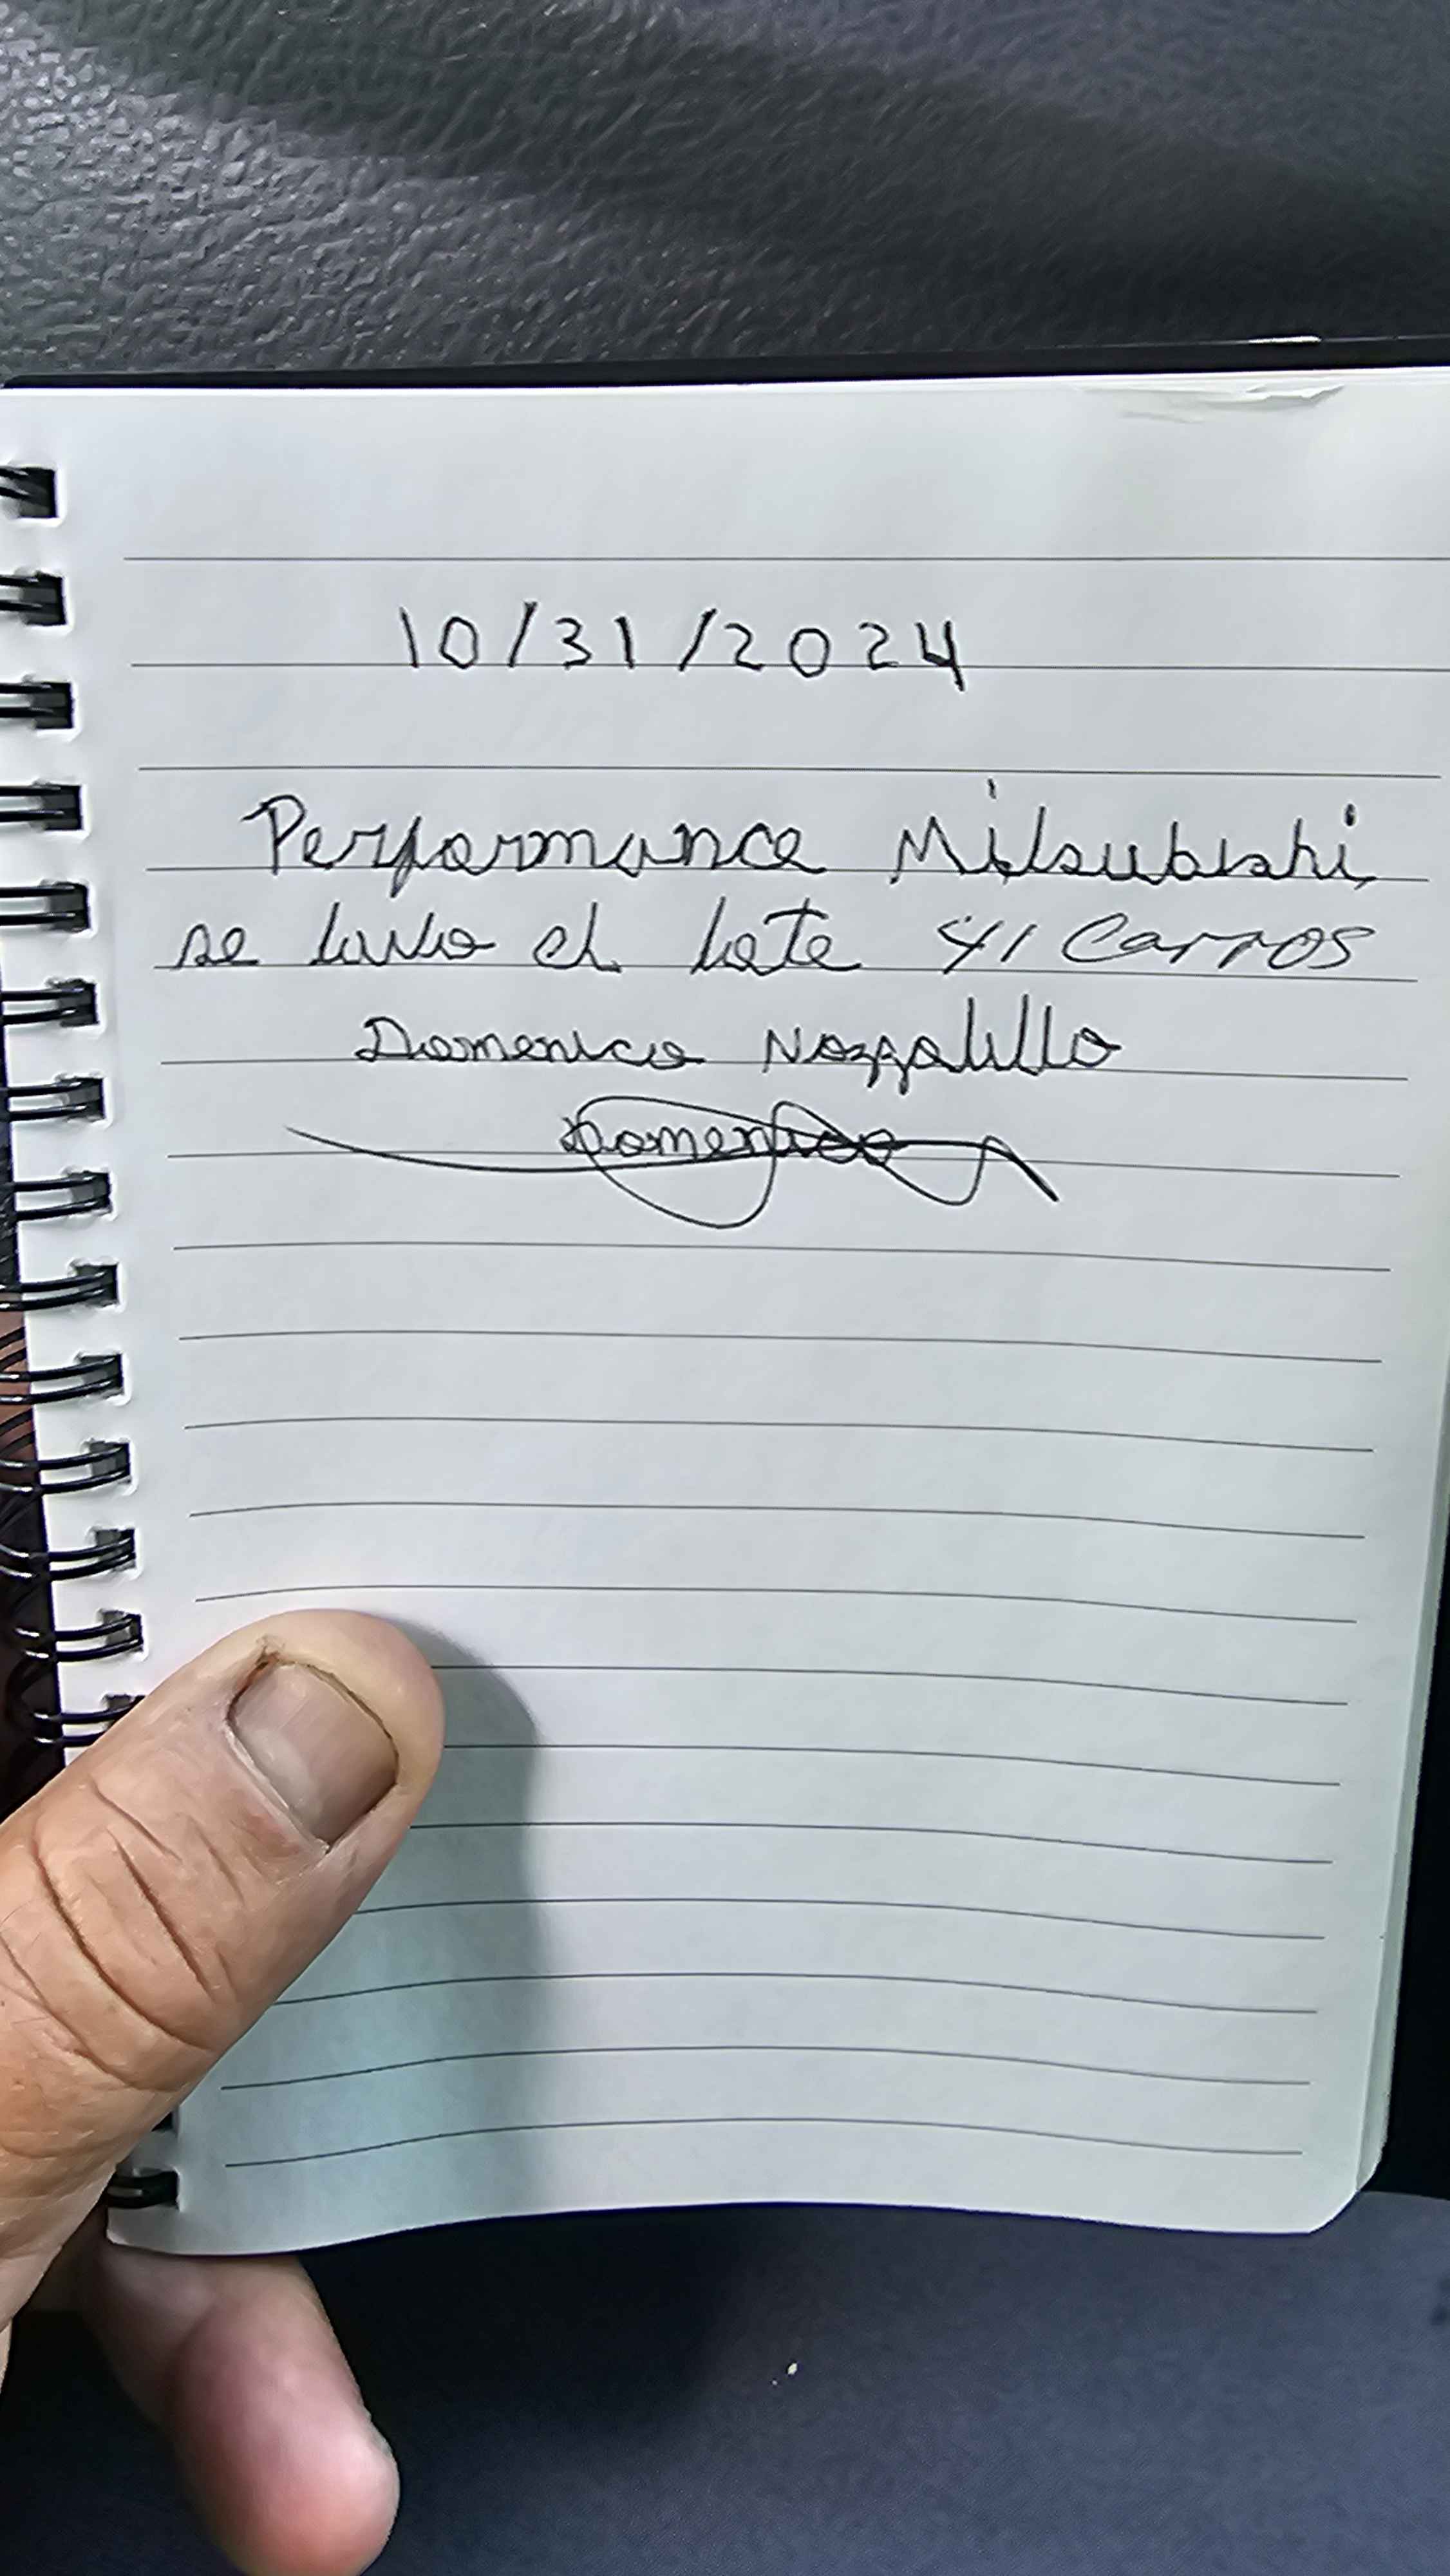 10/31/2024
Performance Mitsubishi
se lavo el lote 41 Carros
Domenico Nozzolillo
Domenico